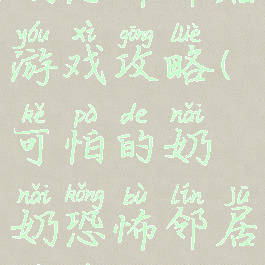 yóu xì gōng lüè
游戏攻略(
kě pà de nǎi
可怕的奶
nǎi kǒng bù lín jū
奶恐怖邻居